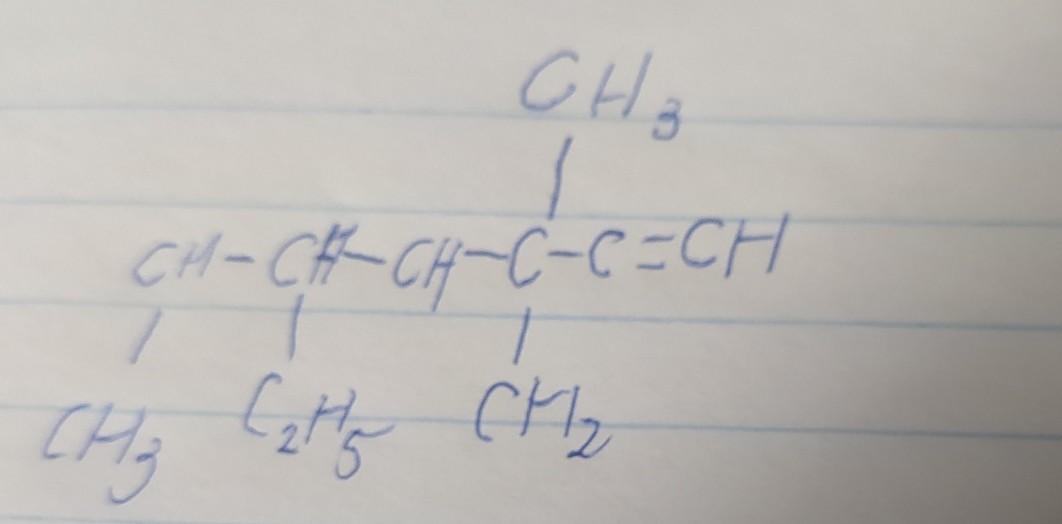 CH3
CH-CH-CH-C-C=CH
CH3 C2H5 CH2